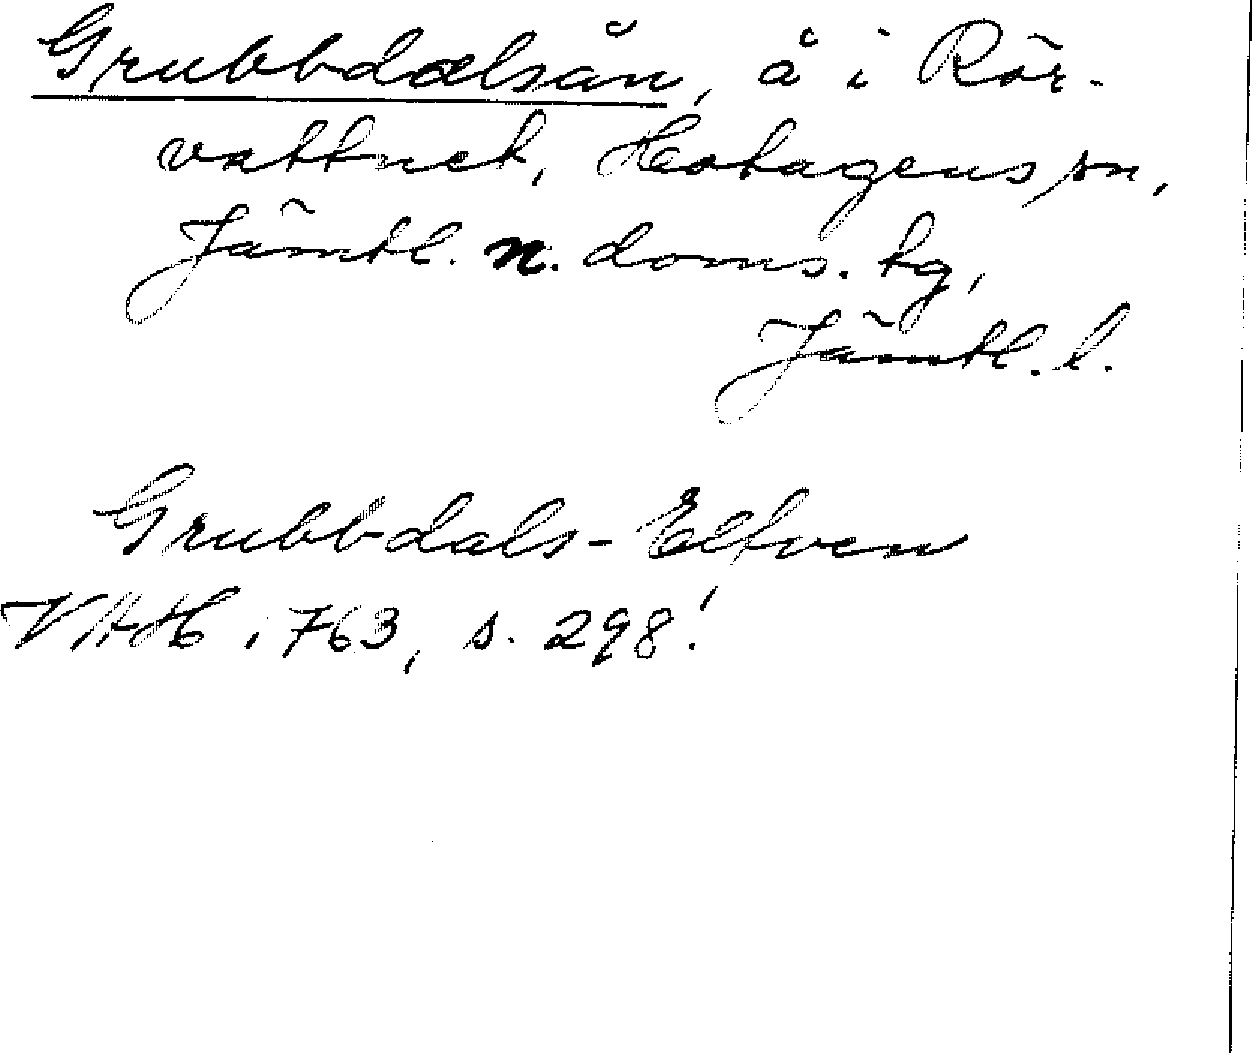 Grubbdalsån, å i Rör-
vattnet, Hotagens sn,
Jämtl. n. doms. tg,
Jämtl. l.
Grubbdals-Elfven
1763, s. 298!